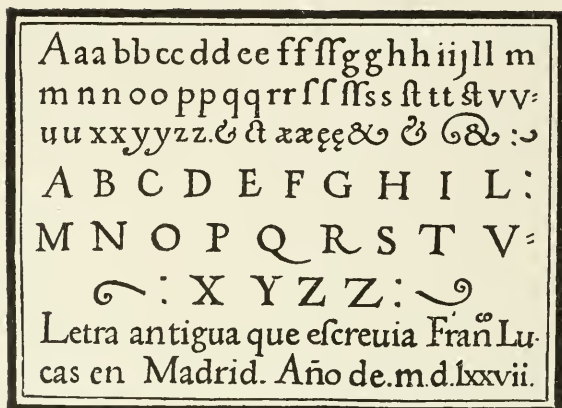 Aaabbccddeeffſſgghhiijll m
mnnooppqqrrſſſſss ſtttſtvv:
uuxxyyzz.& ſt ææęę& & & :~
A B C D E F G H I L :
M N O P Q R S T V:
~: X Y Z Z :~
Letra antigua que eſcreuia Franᶜᵒ Lu-
cas en Madrid. Año de.m.d.lxxvii.